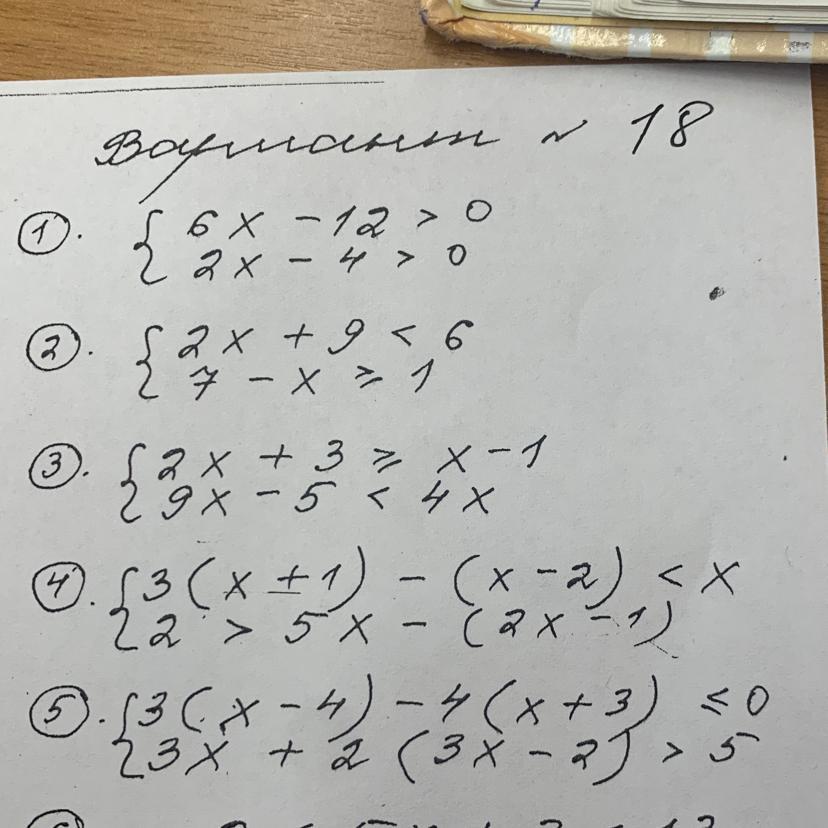 Вариант № 18
1. { 6x - 12 > 0
2x - 4 > 0
2. { 2x + 9 < 6
7 - x ⩾ 1
3. { 2x + 3 ⩾ x - 1
9x - 5 < 4x
4. { 3(x + 1) - (x - 2) < x
2 > 5x - (2x - 1)
5. { 3(x - 4) - 4(x + 3) ≤ 0
3x + 2(3x - 2) > 5